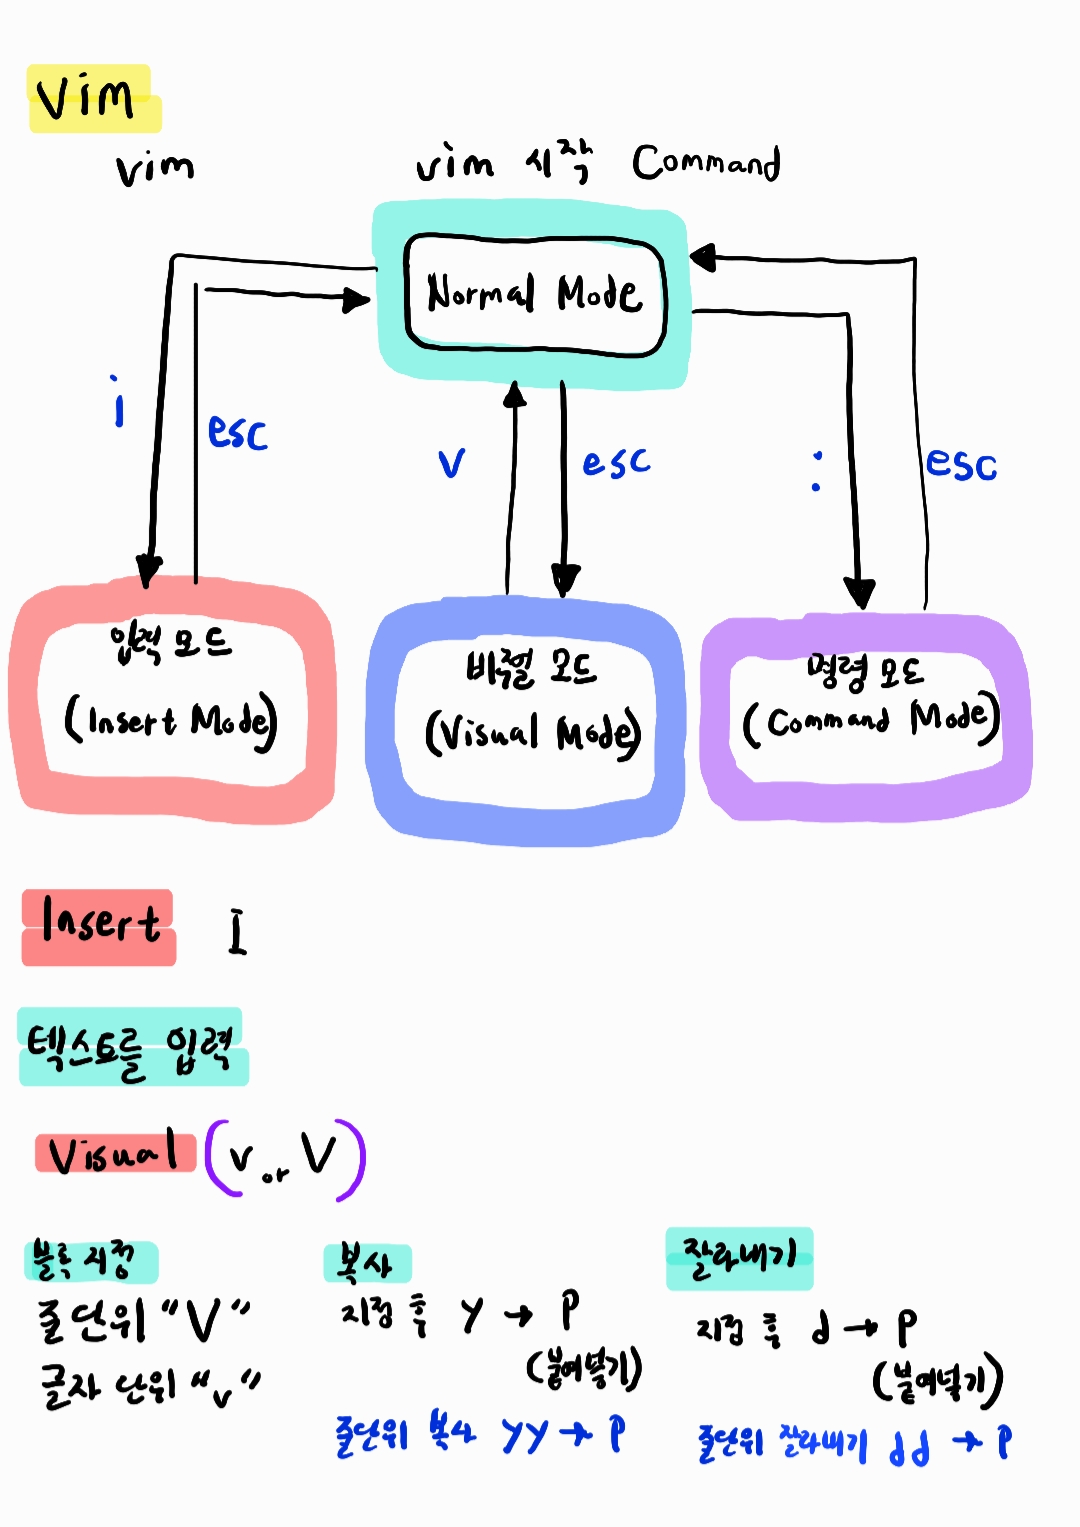 Vim
vim
vim 시작 Command
Normal Mode
i
esc
v
esc
:
esc
입력 모드
(Insert Mode)
비주얼 모드
(Visual Mode)
명령 모드
(Command Mode)
Insert I
텍스트를 입력
Visual (v or V)
블록 지정
줄 단위 "V"
글자 단위 "v"
복사
지정 후 y → P
(붙여넣기)
줄단위 복사 yy → P
잘라내기
지정 후 d → P
(붙여넣기)
줄단위 잘라내기 dd → P